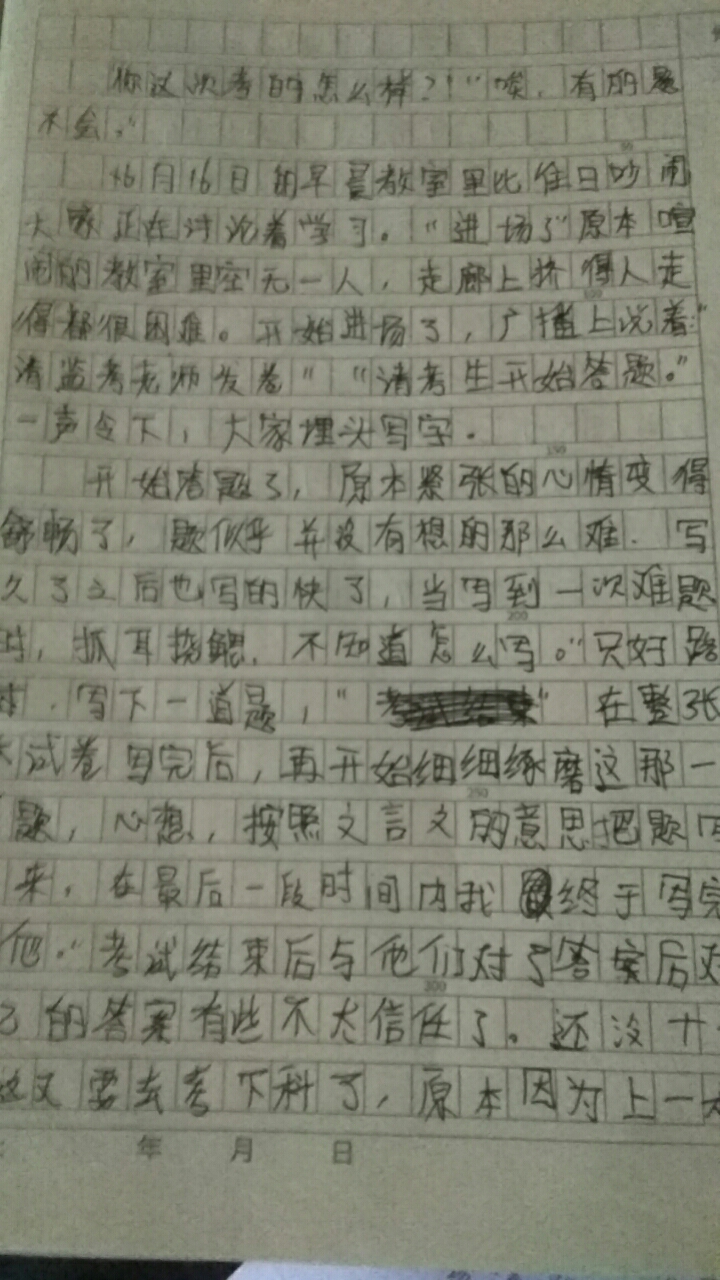 你这次考的怎么样？！"唉，有的题
不会。"
6月16日的早晨教室里比往日吵闹
大家正在讨论着学习。"进场了"原本喧
闹的教室里空无一人，走廊上挤得人走
得都很困难。开始进场了，广播上说着："
请监考老师发卷""请考生开始答题。"
一声令下，大家埋头写字。
开始答题了，原本紧张的心情变得
舒畅了，题似乎并没有想的那么难．写
久了之后也写的快了，当写到一次难题
时，抓耳挠鳃．不知道怎么写。"只好
．写下一道题，" " 在整张
试卷写完后，再开始细细琢磨这那一
题，心想，按照文言文的意思把题写
来，在最后一段时间内我终于写完
他。"考试结束后与他们对了答案后对
己的答案有些不太信任了。还没
这又要去考下科了，原本因为上一
50
100
150
200
250
300
年 月 日